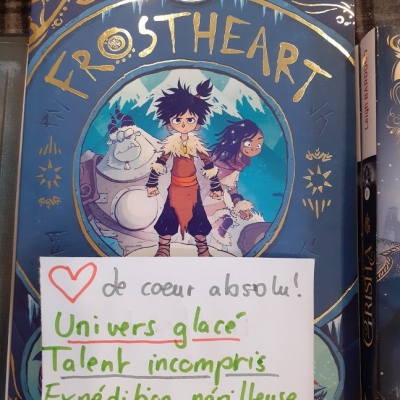 FROSTHEART
de coeur absolu!
Univers glacé
Talent incompris
Expédition périlleuse
GRISHA
Leigh BARDUGO